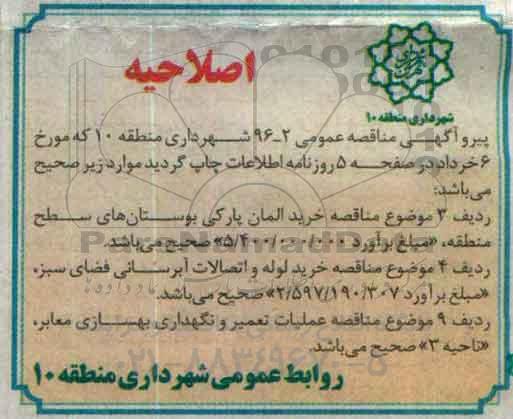 شهرداری منطقه ۱۰
اصلاحیه
پیرو آگهی مناقصه عمومی ۲-۹۶ شهرداری منطقه ۱۰ که مورخ
۶ خرداد در صفحه ۵ روزنامه اطلاعات چاپ گردید موارد زیر صحیح
می‌باشد:
ردیف ۳ موضوع مناقصه خرید المان پارکی بوستان‌های سطح
منطقه، «مبلغ برآورد ۵/۴۰۰/۰۰۰/۰۰۰» صحیح می‌باشد.
ردیف ۴ موضوع مناقصه خرید لوله و اتصالات آبرسانی فضای سبز،
«مبلغ برآورد ۲/۵۹۷/۱۹۰/۳۰۷» صحیح می‌باشد.
ردیف ۹ موضوع مناقصه عملیات تعمیر و نگهداری بهسازی معابر،
«ناحیه ۳» صحیح می‌باشد.
روابط عمومی شهرداری منطقه ۱۰